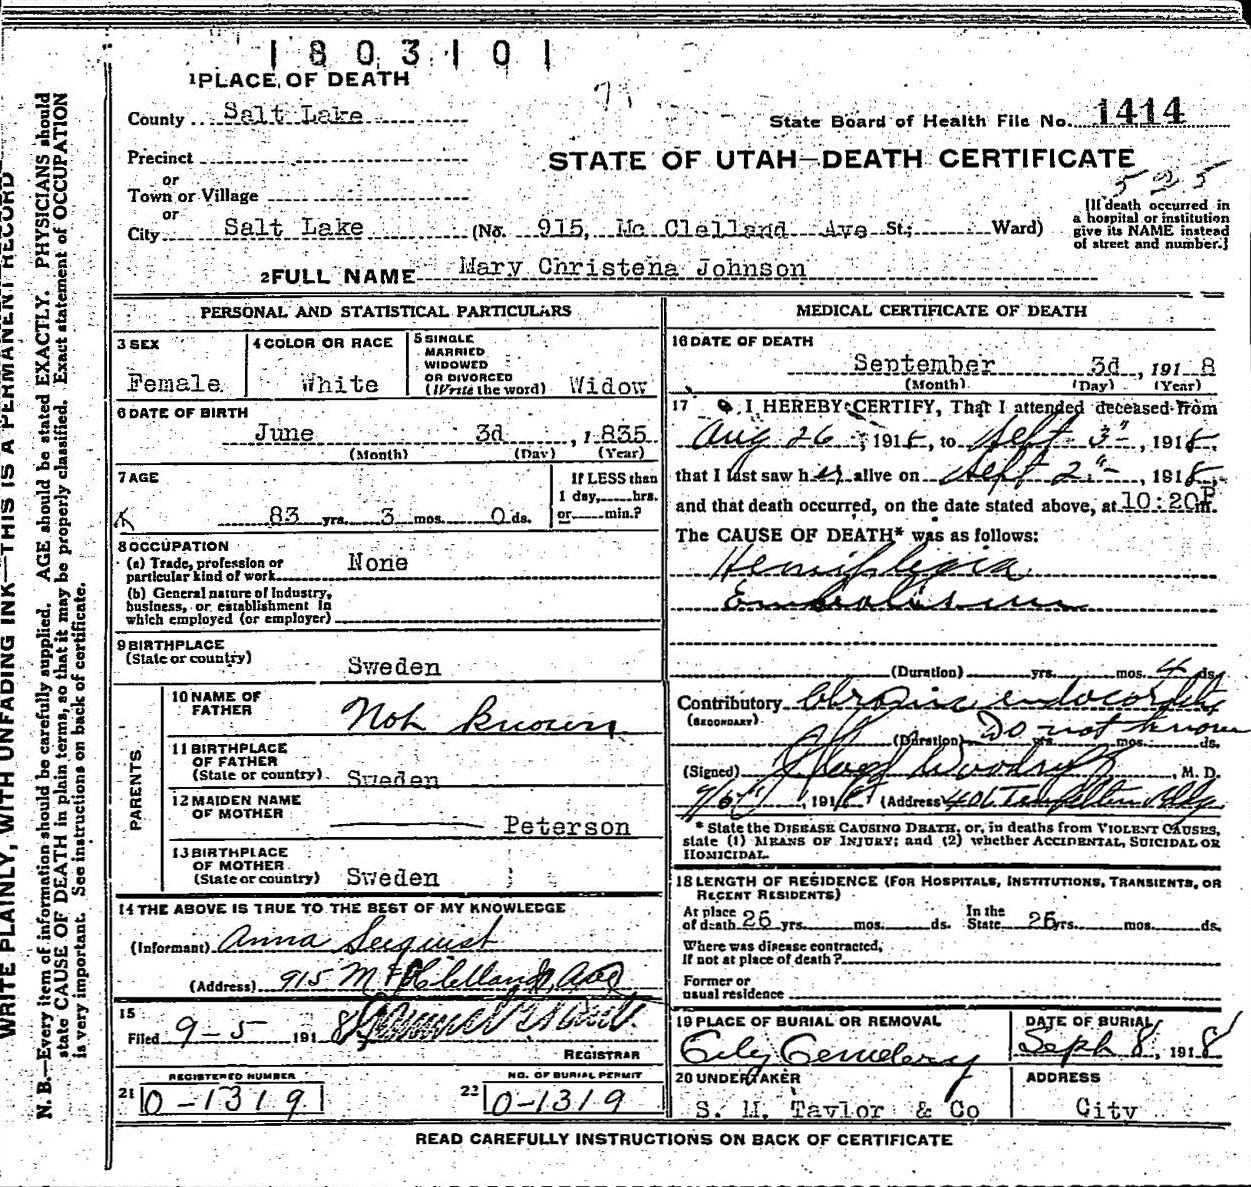 1803101
1 PLACE OF DEATH
County Salt Lake
State Board of Health File No. 1414
Precinct
STATE OF UTAH—DEATH CERTIFICATE
or
Town or Village
525
or
City Salt Lake (No. 915, Mc Clelland Ave St.; Ward)
[If death occurred in
a hospital or institution
give its NAME instead
of street and number.]
2 FULL NAME Mary Christena Johnson
PERSONAL AND STATISTICAL PARTICULARS
3 SEX
Female
4 COLOR OR RACE
White
5 SINGLE
MARRIED
WIDOWED
OR DIVORCED
(Write the word) Widow
6 DATE OF BIRTH
June 3d, 1835
(Month) (Day) (Year)
7 AGE
83 yrs. 3 mos. 0 ds.
If LESS than
1 day, hrs.
or min.?
8 OCCUPATION
(a) Trade, profession or
particular kind of work None
(b) General nature of Industry,
business, or establishment in
which employed (or employer)
9 BIRTHPLACE
(State or country) Sweden
PARENTS
10 NAME OF
FATHER Not known
11 BIRTHPLACE
OF FATHER
(State or country) Sweden
12 MAIDEN NAME
OF MOTHER Peterson
13 BIRTHPLACE
OF MOTHER
(State or country) Sweden
14 THE ABOVE IS TRUE TO THE BEST OF MY KNOWLEDGE
(Informant) Anna Seequist
(Address) 915 McClelland Ave
15
Filed 9-5 1918
REGISTRAR
REGISTERED NUMBER
21 0-1319
NO. OF BURIAL PERMIT
22 0-1319
MEDICAL CERTIFICATE OF DEATH
16 DATE OF DEATH
September 3d, 1918
(Month) (Day) (Year)
17 I HEREBY CERTIFY, That I attended deceased from
Aug 26, 1918, to Sept 3", 1918,
that I last saw her alive on Sept 2", 1918,
and that death occurred, on the date stated above, at 10:20P m.
The CAUSE OF DEATH* was as follows:
Hemiplegia
Embolism
(Duration) yrs. mos. 4 ds.
Contributory Chronic endocarditis
(SECONDARY)
(Duration) Do not know yrs. mos. ds.
(Signed) Woodruff, M. D.
, 1918 (Address) 401 Templeton Bldg
* State the DISEASE CAUSING DEATH, or, in deaths from VIOLENT CAUSES,
state (1) MEANS OF INJURY; and (2) whether ACCIDENTAL, SUICIDAL OR
HOMICIDAL.
18 LENGTH OF RESIDENCE (FOR HOSPITALS, INSTITUTIONS, TRANSIENTS, OR
RECENT RESIDENTS)
At place
of death 26 yrs. mos. ds.
In the
State 26 yrs. mos. ds.
Where was disease contracted,
if not at place of death?
Former or
usual residence
19 PLACE OF BURIAL OR REMOVAL
City Cemetery
DATE OF BURIAL
Sept 8, 1918
20 UNDERTAKER
S. M. Taylor & Co
ADDRESS
City
READ CAREFULLY INSTRUCTIONS ON BACK OF CERTIFICATE
WRITE PLAINLY, WITH UNFADING INK—THIS IS A PERMANENT RECORD
N. B.—Every item of information should be carefully supplied. AGE should be stated EXACTLY. PHYSICIANS should
state CAUSE OF DEATH in plain terms, so that it may be properly classified. Exact statement of OCCUPATION
is very important. See instructions on back of certificate.